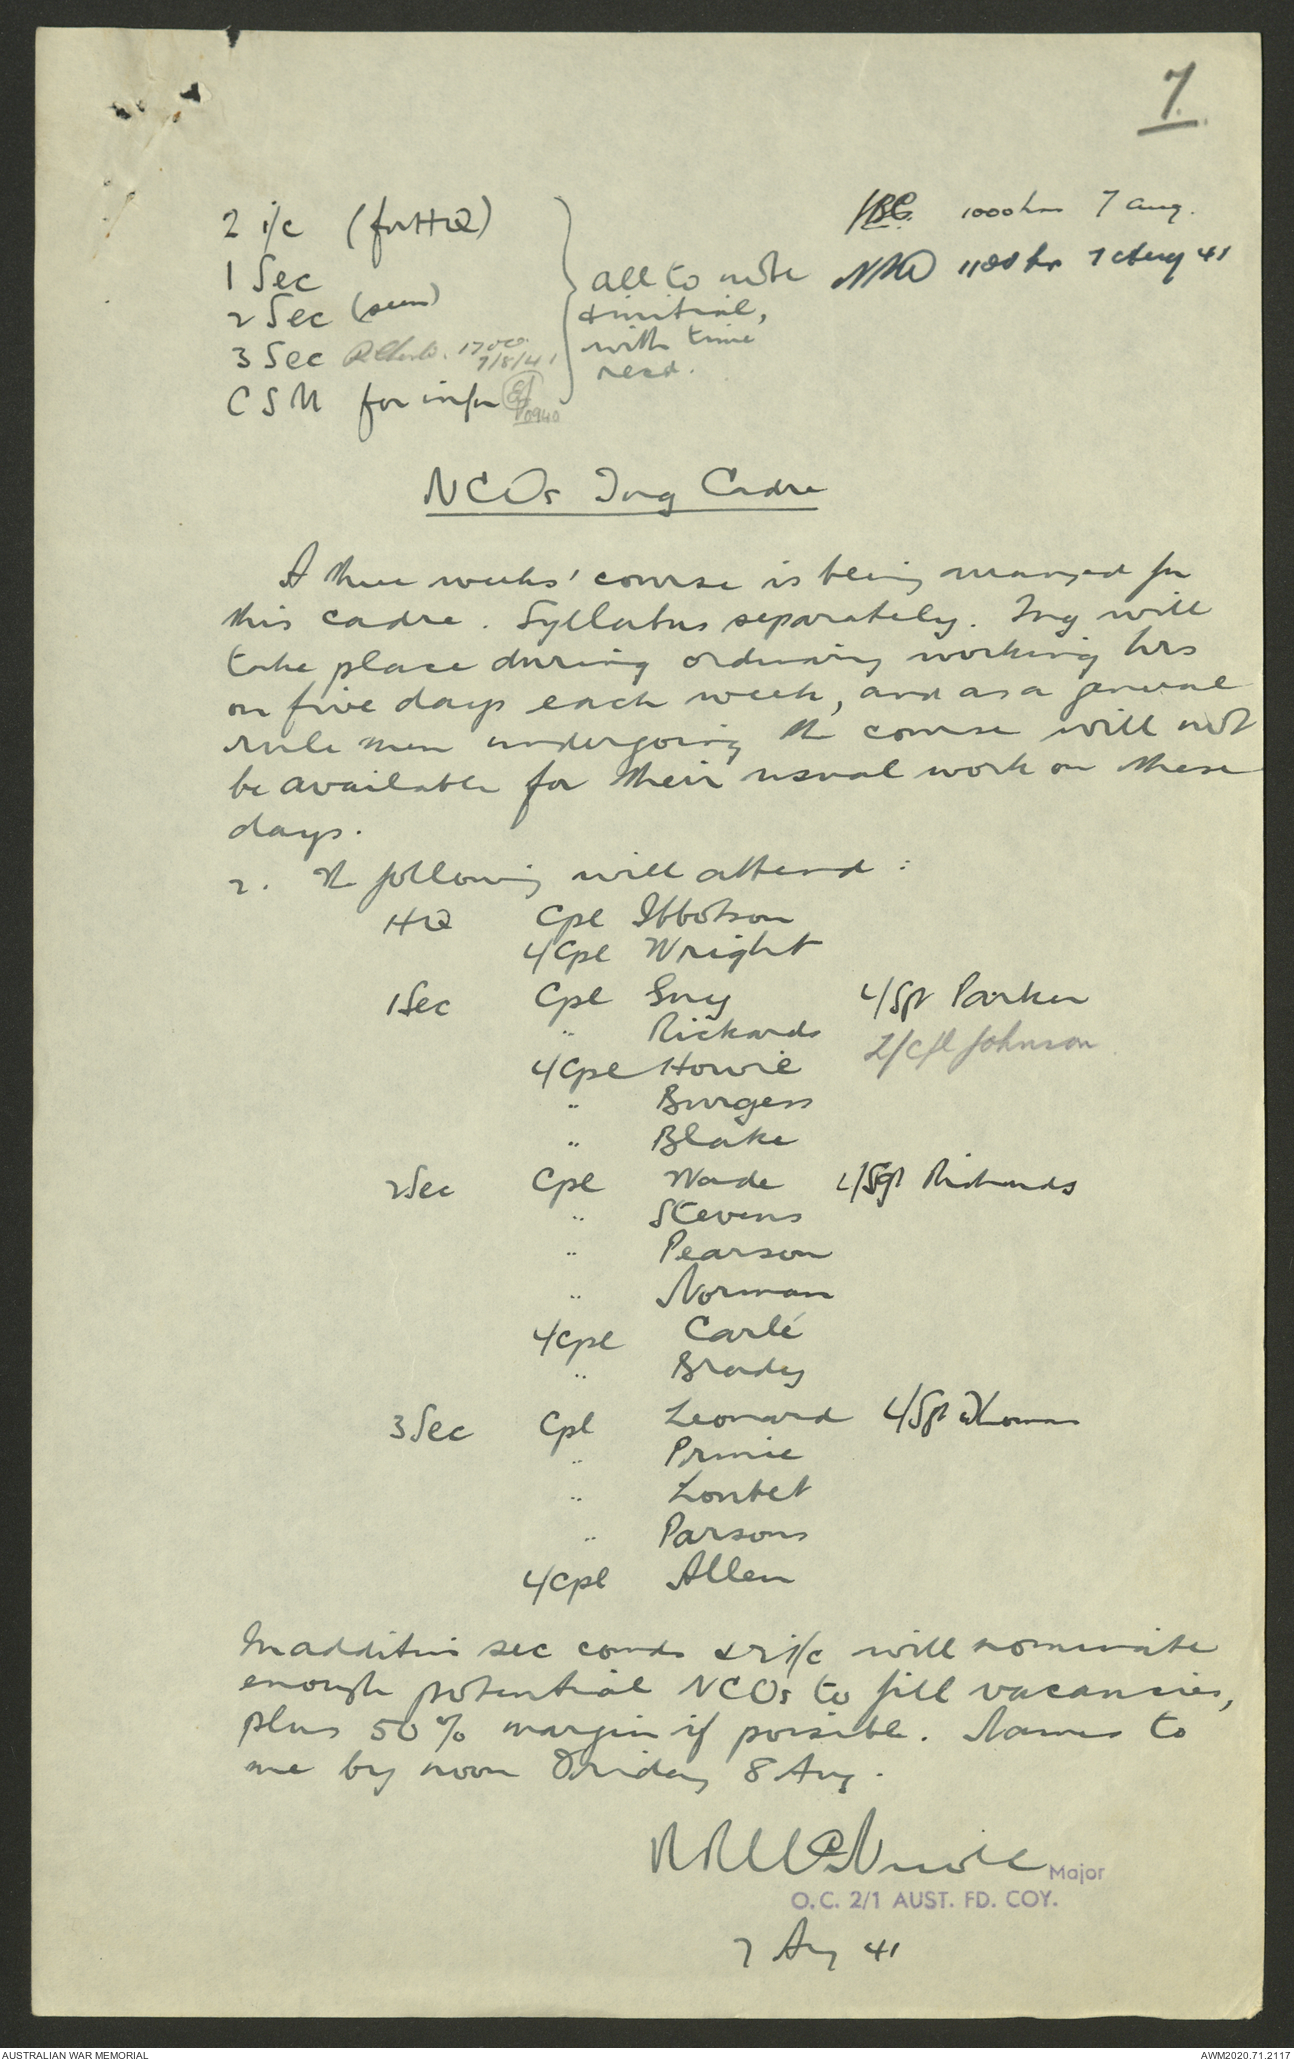 7.
2 i/c (for HQ)
1 Sec
2 Sec (seen)
3 Sec 1700. 7/8/41
CSM for infn 0940
all to note
& initial,
with time
read.
1000 hrs 7 Aug.
1100 hr 7 Aug 41
NCOs Trng Cadre
A three weeks' course is being arranged for
this cadre. Syllabus separately. Trng will
take place during ordinary working hrs
on five days each week, and as a general
rule men undergoing the course will not
be available for their usual work on these
days.
2. The following will attend :
HQ Cpl Ibbotson
L/Cpl Wright
1 Sec Cpl Guy L/Sgt Parker
" Rickards
L/Cpl Howie L/Cpl Johnson
" Burgess
" Blake
2 Sec Cpl Wade L/Sgt Richards
" Stevens
" Pearson
" Norman
L/Cpl Carlé
" Brady
3 Sec Cpl Leonard L/Sgt Thomas
" Pirnie
" Loutet
" Parsons
L/Cpl Allen
In addition sec comds & 2 i/c will nominate
enough potential NCOs to fill vacancies,
plus 50% margin if possible. Names to
me by noon Friday 8 Aug.
Major
O.C. 2/1 AUST. FD. COY.
7 Aug 41
AUSTRALIAN WAR MEMORIAL
AWM2020.71.2117